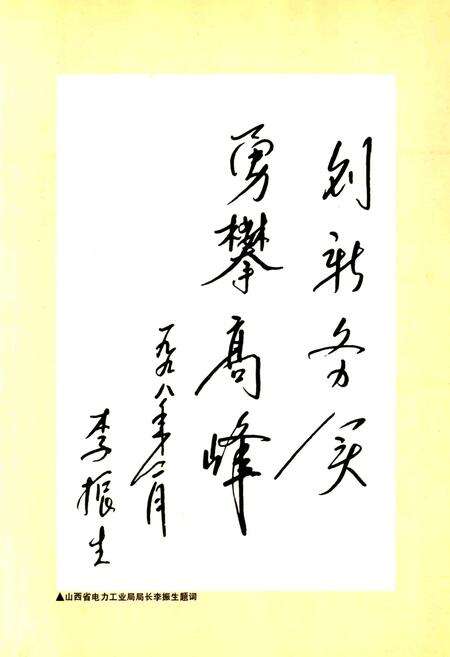 创新务实
勇攀高峰
一九九八年十二月
李振生
▲山西省电力工业局局长李振生题词